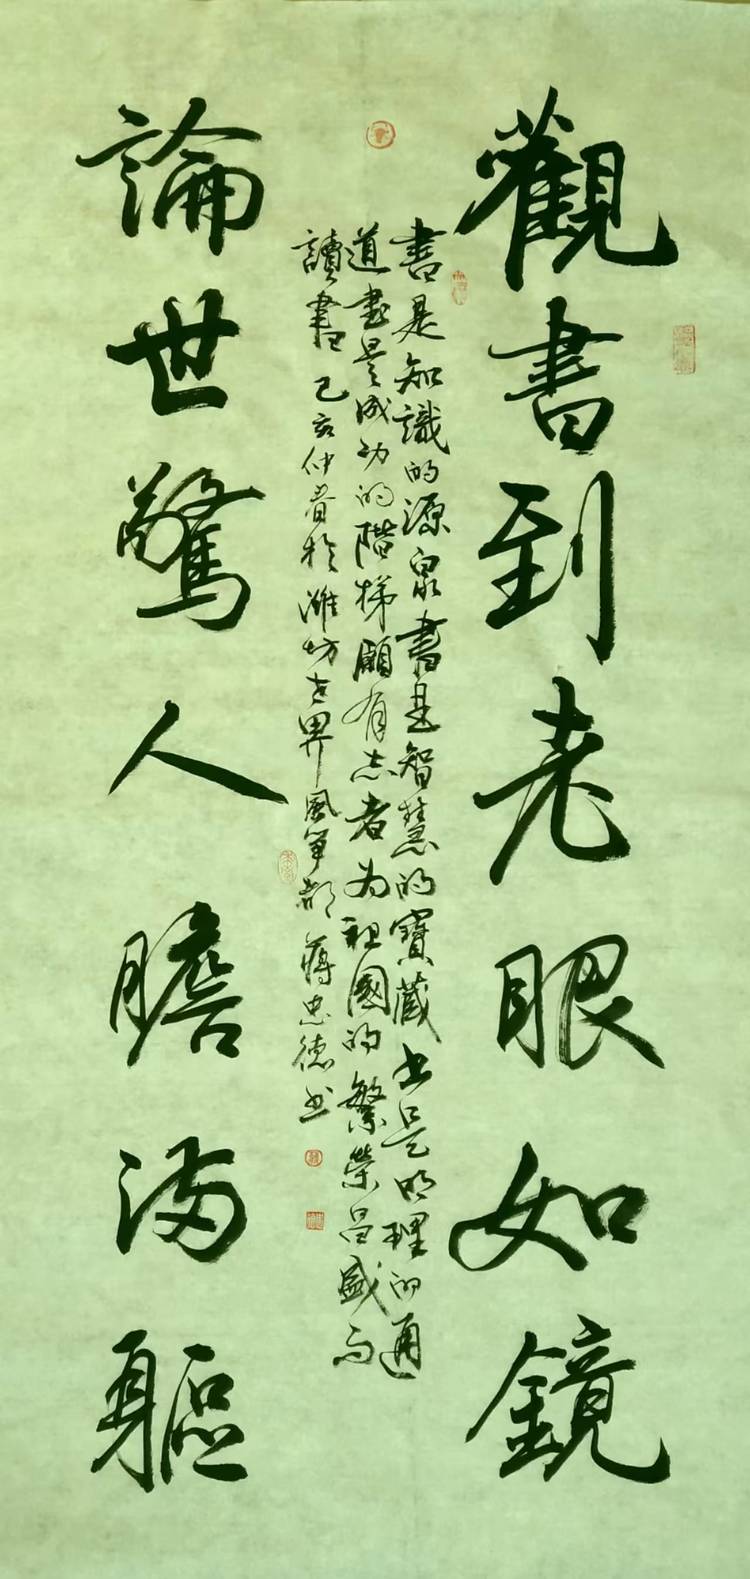 觀書到老眼如鏡
書是知識的源泉書是智慧的寶藏書是明理的通
道書是成功的階梯願有志者為祖國的繁榮昌盛而
讀書 己亥仲春於濰坊世界風箏都 蔣忠德书
論世驚人膽滿軀